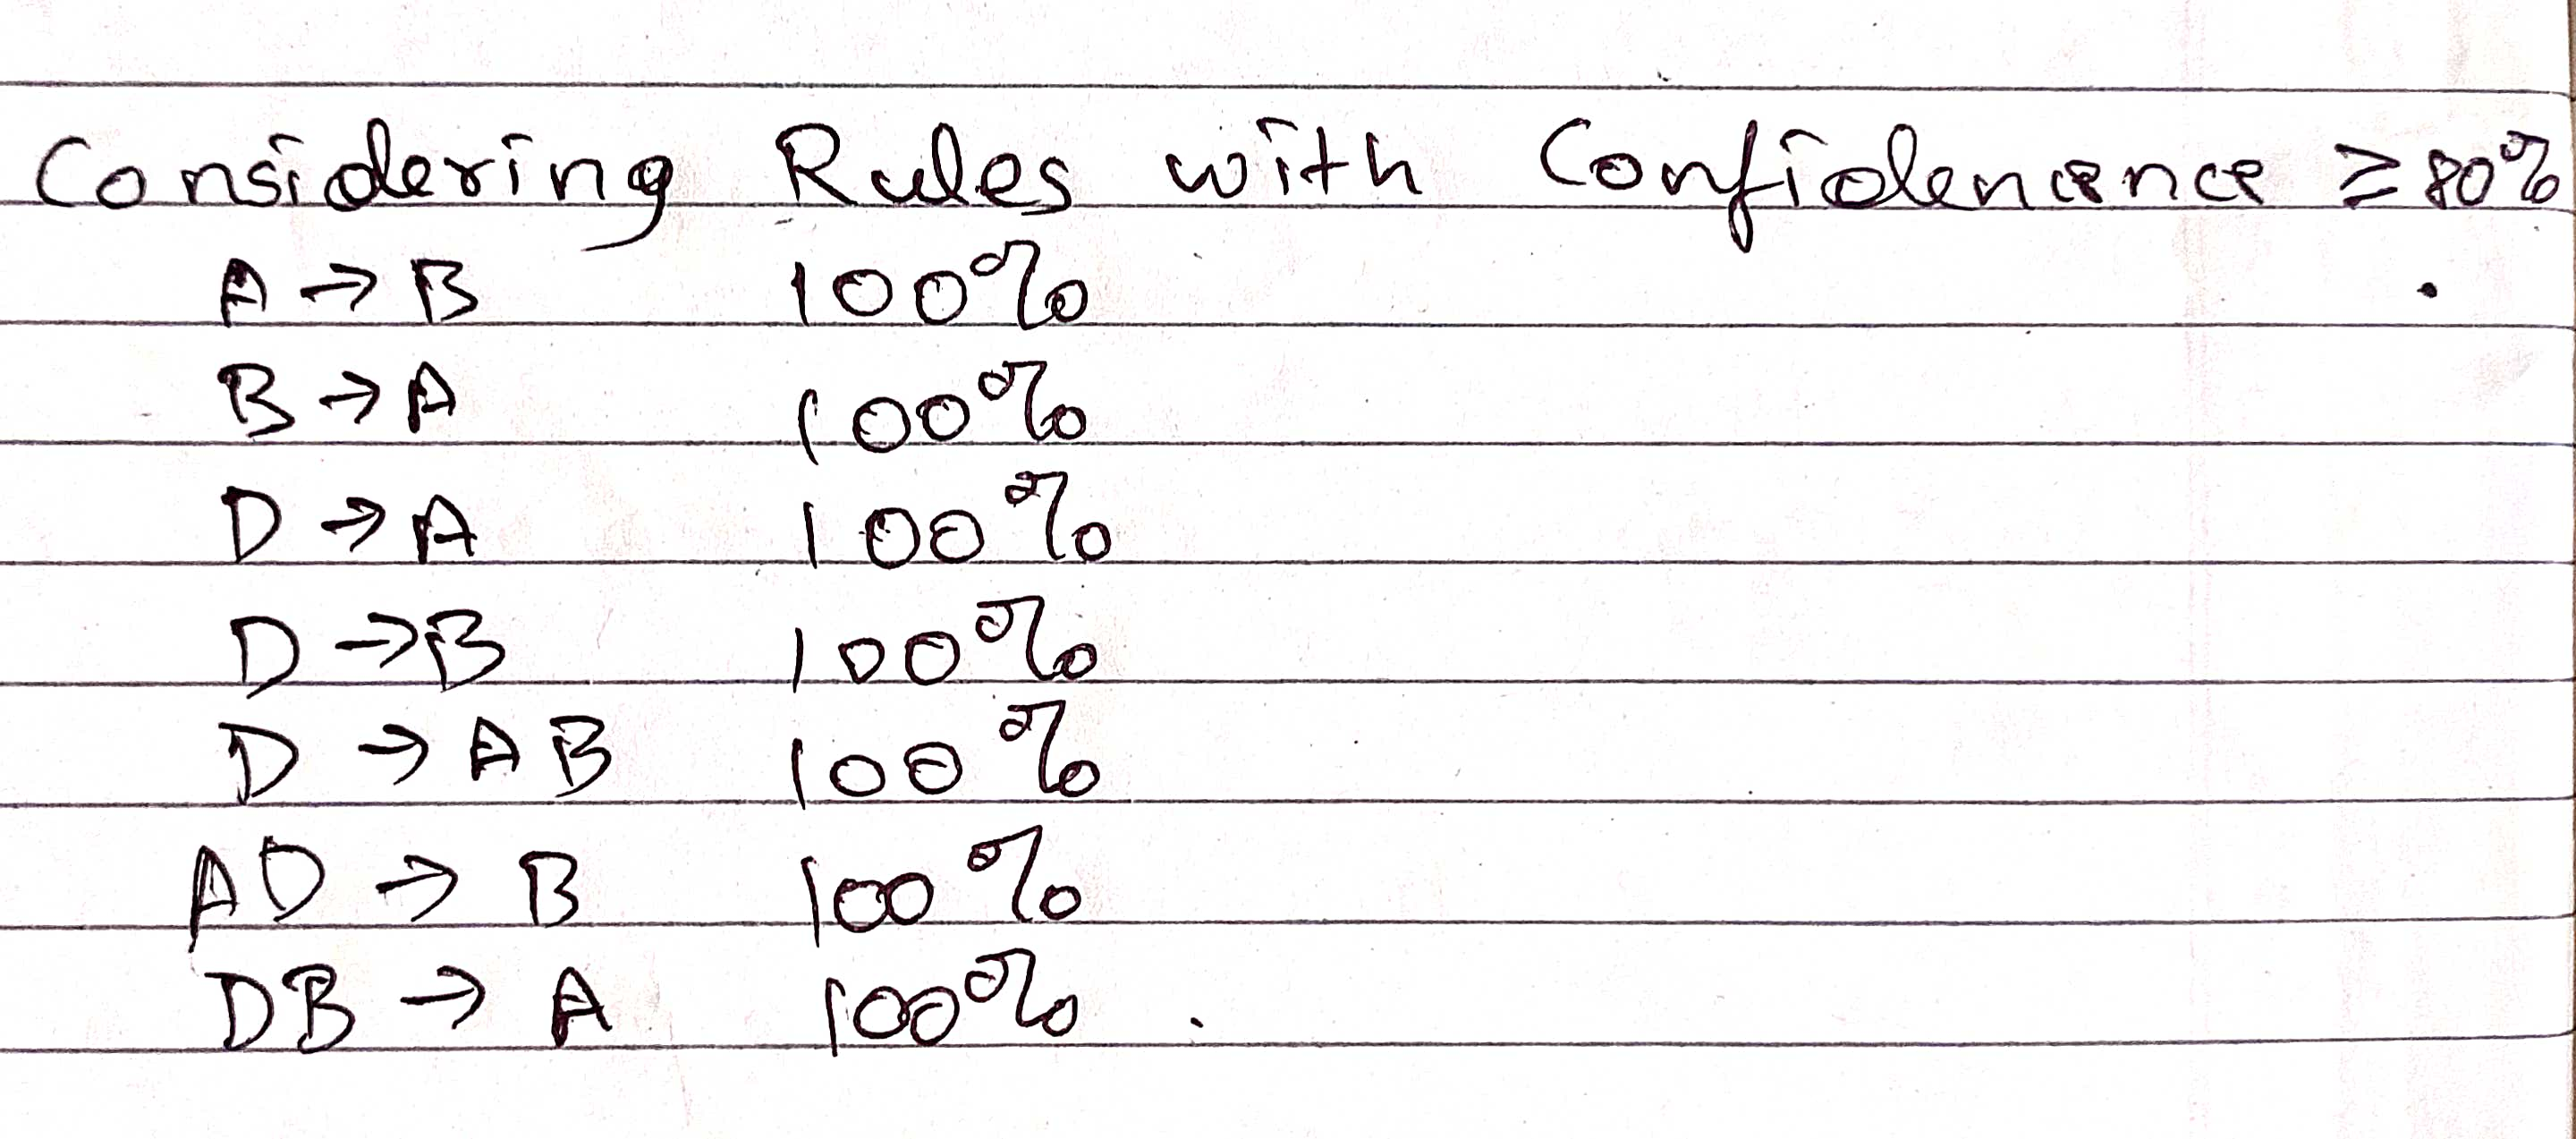 Considering Rules with Confidencence ≥ 80%
A → B 100%
B → A 100%
D → A 100%
D → B 100%
D → AB 100%
AD → B 100%
DB → A 100% .